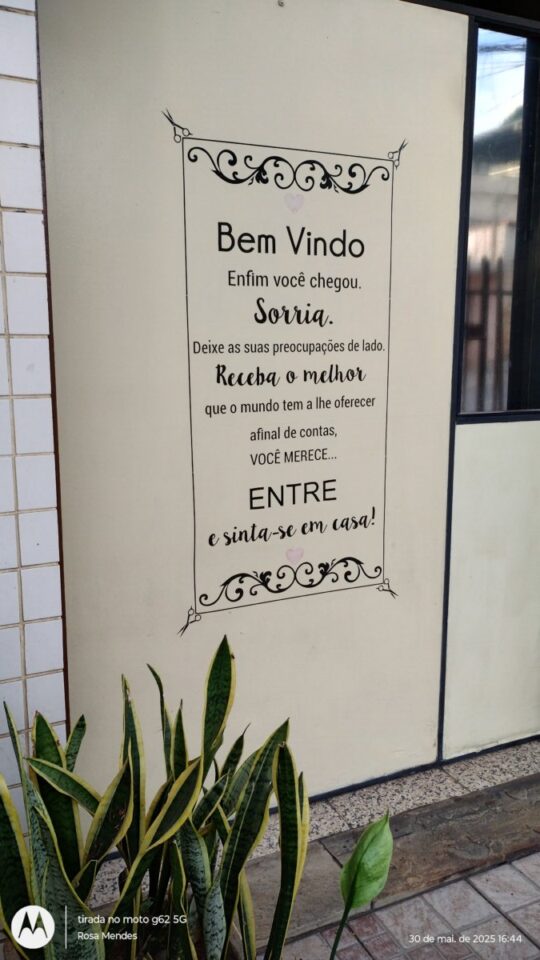 Bem Vindo
Enfim você chegou.
Sorria.
Deixe as suas preocupações de lado.
Receba o melhor
que o mundo tem a lhe oferecer
afinal de contas,
VOCÊ MERECE...
ENTRE
e sinta-se em casa!
tirada no moto g62 5G
Rosa Mendes
30 de mai. de 2025 16:44